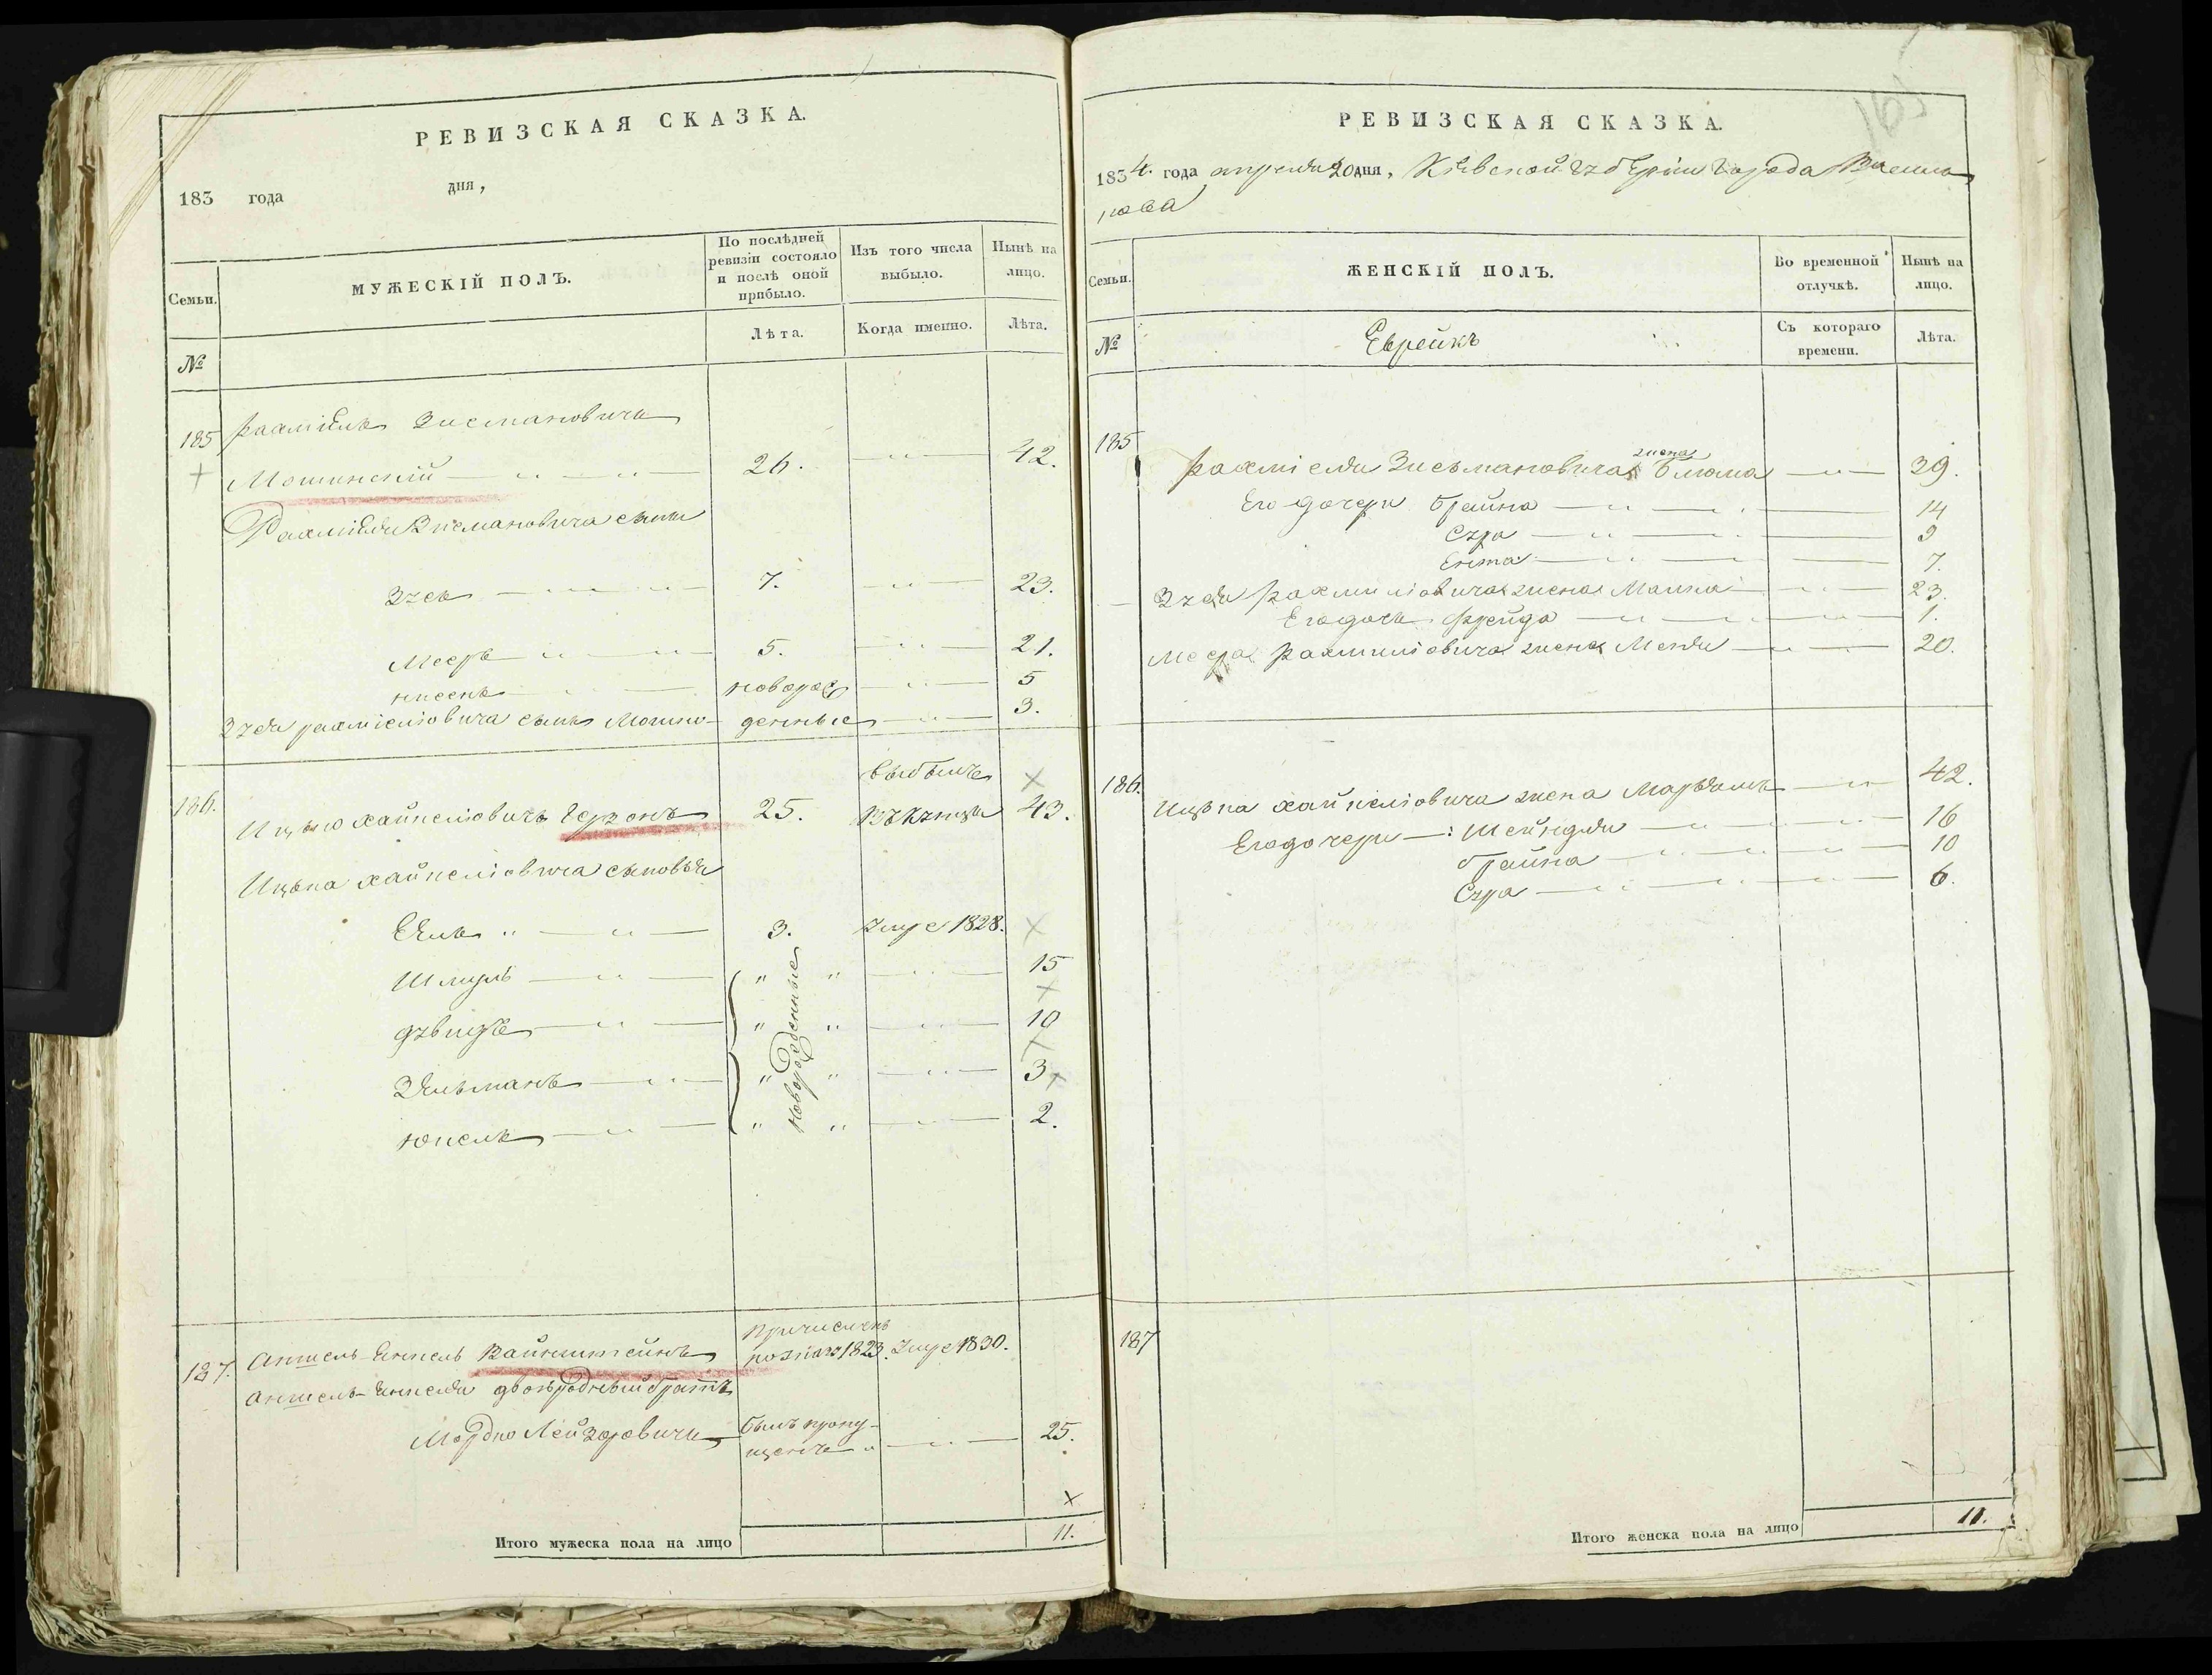 РЕВИЗСКАЯ СКАЗКА.
183 года дня,
Семьи.
МУЖЕСКІЙ ПОЛЪ.
По послѣдней ревизіи состояло и послѣ оной прибыло.
Изъ того числа выбыло.
Нынѣ на лицо.
№
Лѣта.
Когда именно.
Лѣта.
185 Рахміель Зисмановичъ
Мошинскій 26. 42.
Рахміеля Зисмановича сыны
Зусь 7. 23.
Мееръ 5. 21.
нисенъ новорож 5
Зуся рахміеліовича сынъ Мошко денные 3.
выбылъ
186. Ицько хайкеліовичъ Герзонъ 25. Въ Купцы 43.
Ицька хайкеліовича сыновья
Еиль 3. Умре 1828.
Шмуль 15
Давидъ 10
новорожденные
Зельманъ 3
юкель 2.
причисленъ
187. Аншель-Енкель Вайнштейнъ 1823. Умре 1830.
Аншель-Енкеля двоюродный братъ
Мордко Лейзеровичъ былъ пропу-
щенъ 25.
Итого мужеска пола на лицо 11.
РЕВИЗСКАЯ СКАЗКА.
1834. года апреля 20 дня, Кіевской губерніи города Василь
кова
Семьи.
ЖЕНСКІЙ ПОЛЪ.
Во временной отлучкѣ.
Нынѣ на лицо.
№
Еврейкъ
Съ котораго времени.
Лѣта.
185
жена
Рахміеля Зисьмановича Блюма 39.
Его дочери Брайна 14
Сура 9
Ента 7.
Зуся Рахмиліовича жена Малка 23.
Его дочь Фрейда 1.
Меера Рахмиліовича жена Менди 20.
186. Ицька хайкеліовича жена Марьямъ 42.
Его дочери: Шейндля 16
Брайна 10
Сура 6.
187
Итого женска пола на лицо 11.